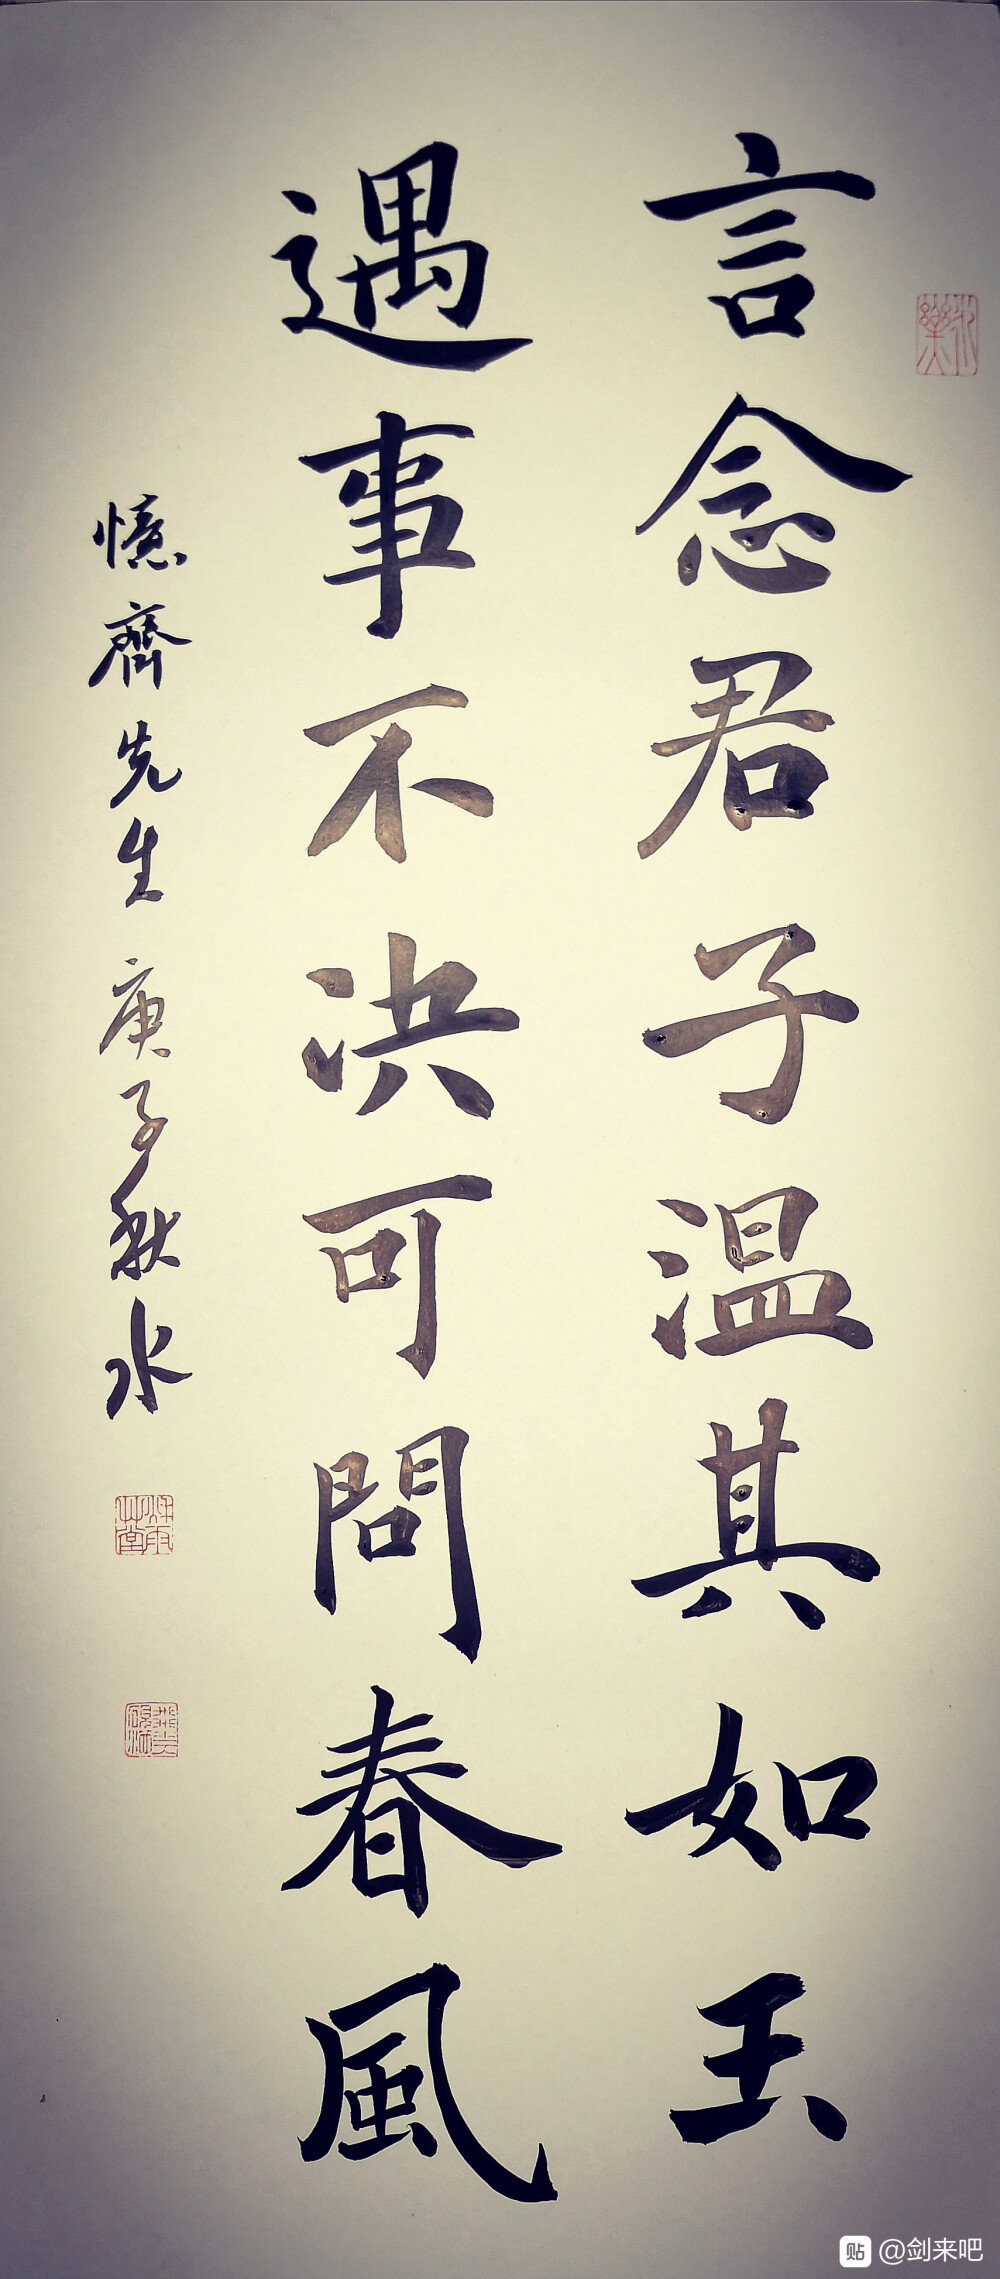 言念君子温其如玉
遇事不決可問春風
憶齋先生庚子秋水
貼 @剑来吧